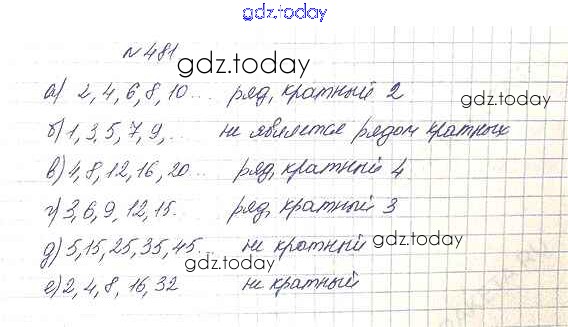 gdz.today
№ 481
gdz.today
а) 2, 4, 6, 8, 10... ряд, кратный 2
gdz.today
б) 1, 3, 5, 7, 9, .. не является рядом кратных
в) 4, 8, 12, 16, 20... ряд, кратный 4
г) 3, 6, 9, 12, 15.. ряд, кратный 3
д) 5, 15, 25, 35, 45... не кратный
gdz.today
gdz.today
е) 2, 4, 8, 16, 32 не кратный